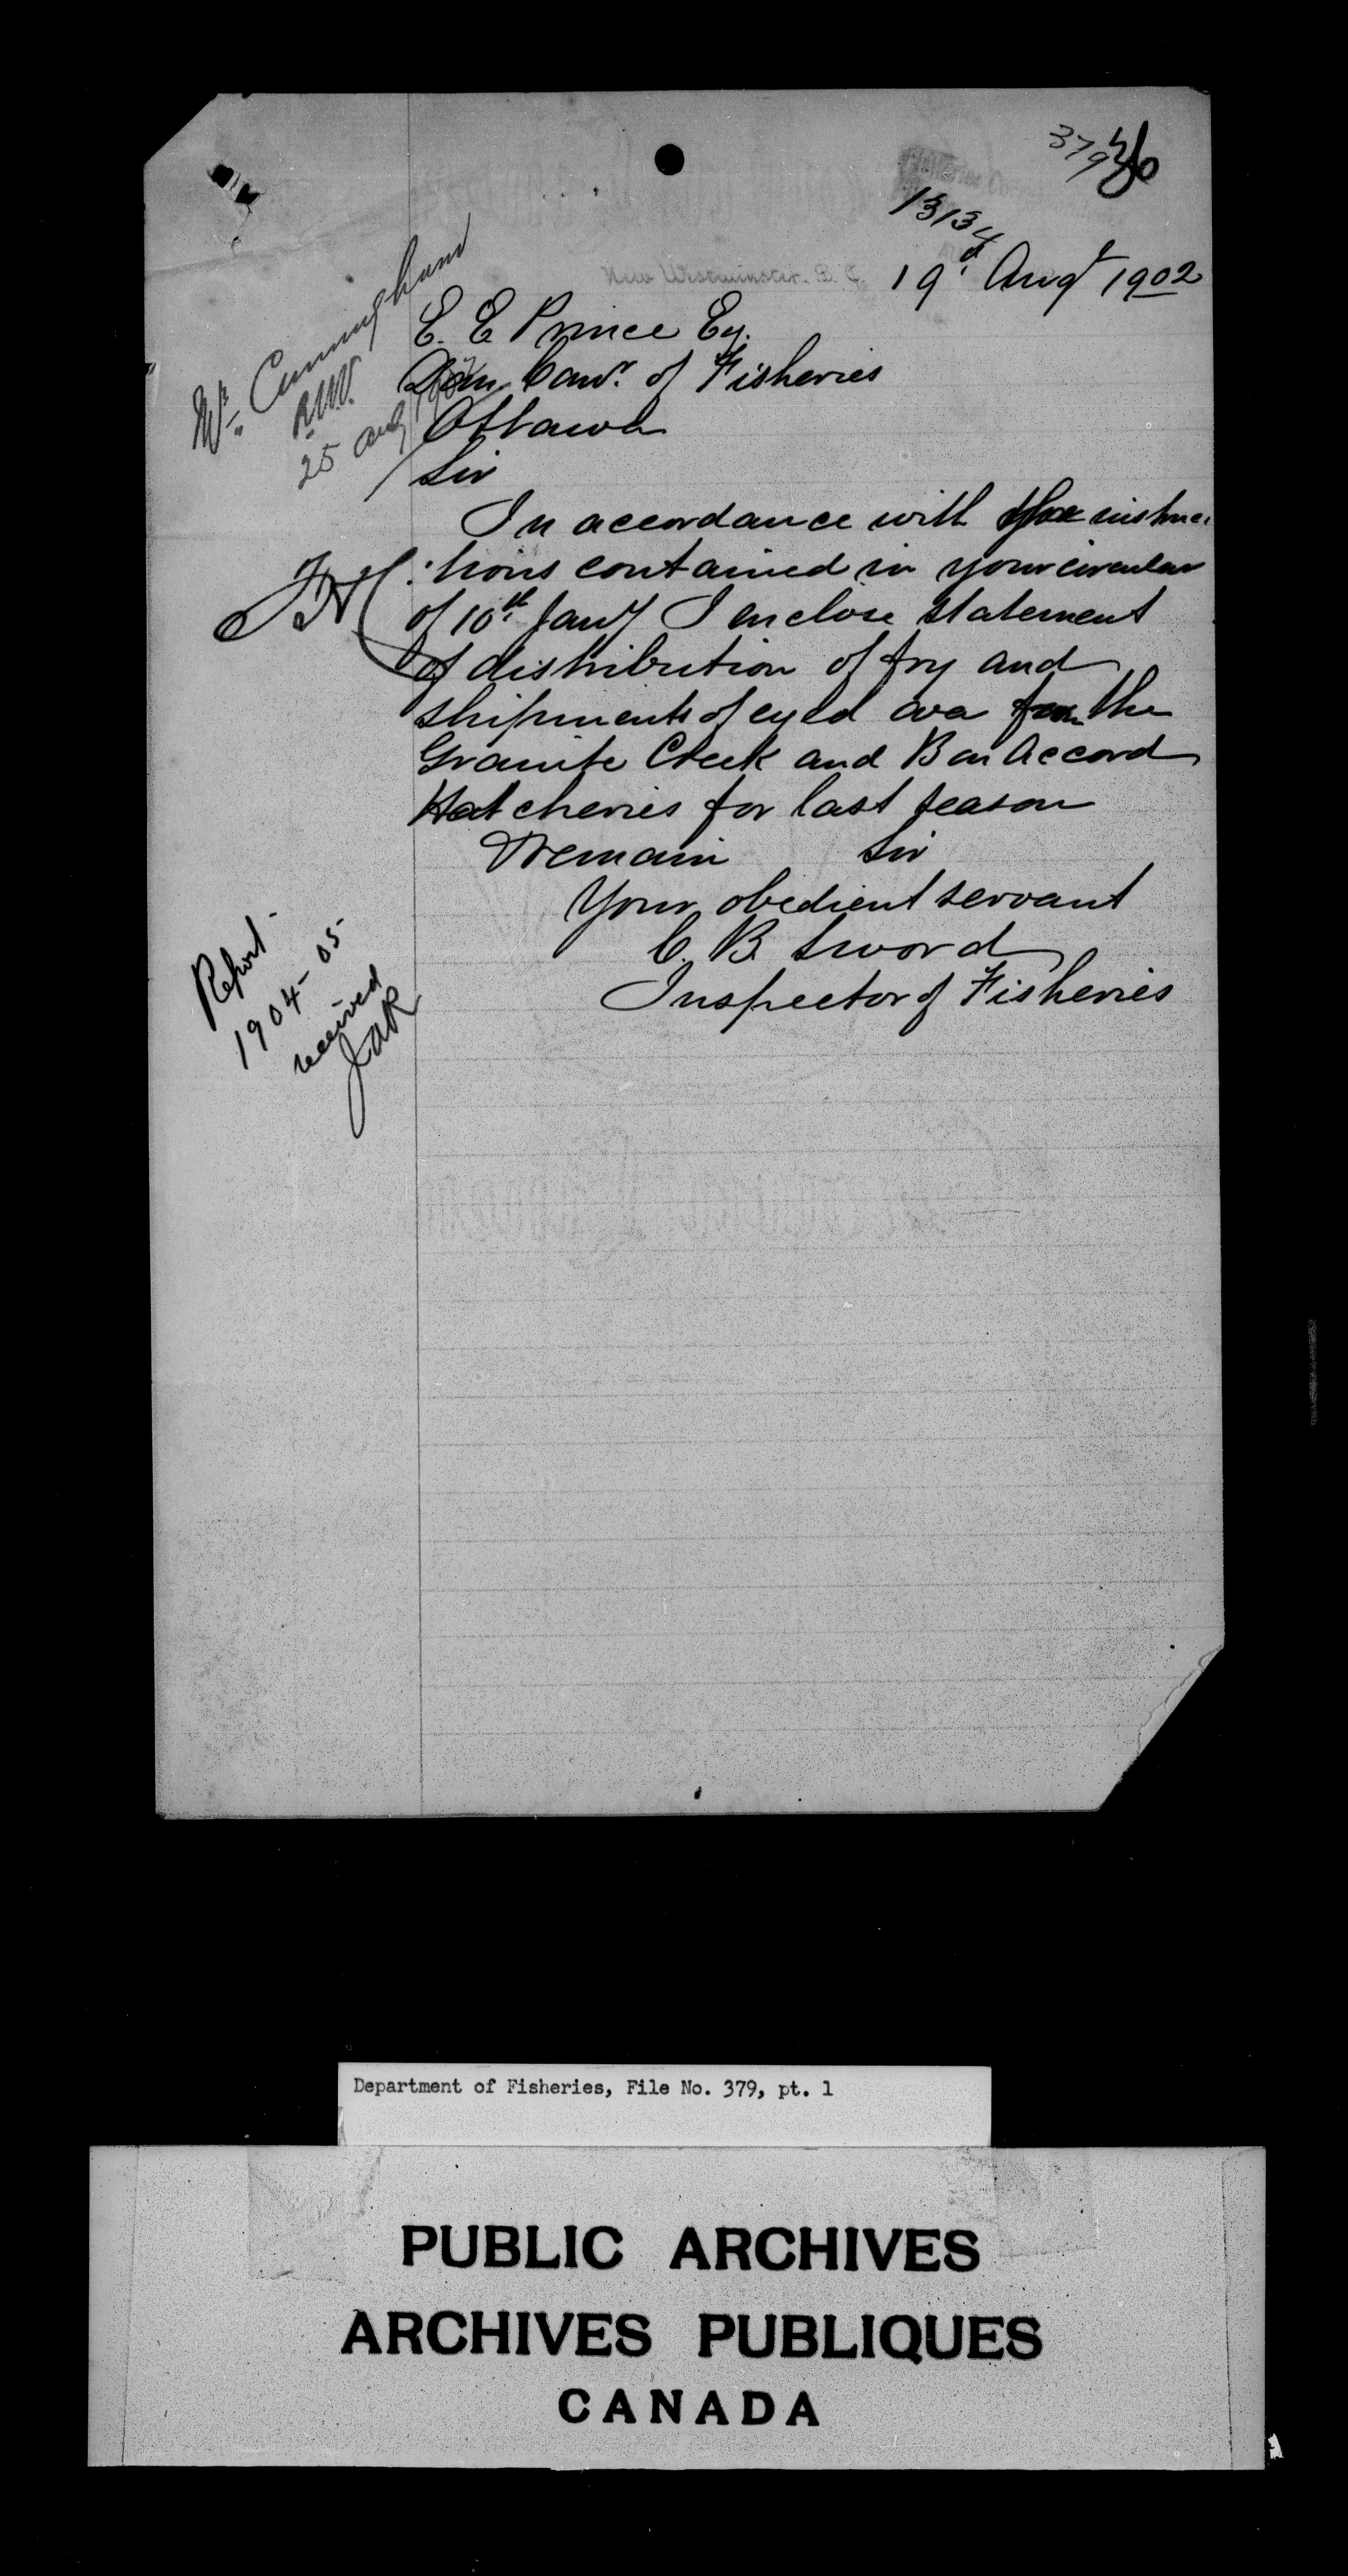 379
13134
New Westminster. B. C. 19th Augt 1902
E. E Prince Esq.
Dom Comr. of Fisheries
Ottawa
Sir
In accordance with the instruc:
:tions contained in your circular
of 10th Jany I enclose statement
of distribution of fry and
shipments of eyed ova from the
Granite Creek and Bon Accord
Hatcheries for last season
I remain Sir
Your obedient servant
C. B. Sword
Inspector of Fisheries
Mr. Cunningham
R.W.
25 Aug 1902
Report -
1904-05-
received
JAR
Department of Fisheries, File No. 379, pt. 1
PUBLIC ARCHIVES
ARCHIVES PUBLIQUES
CANADA